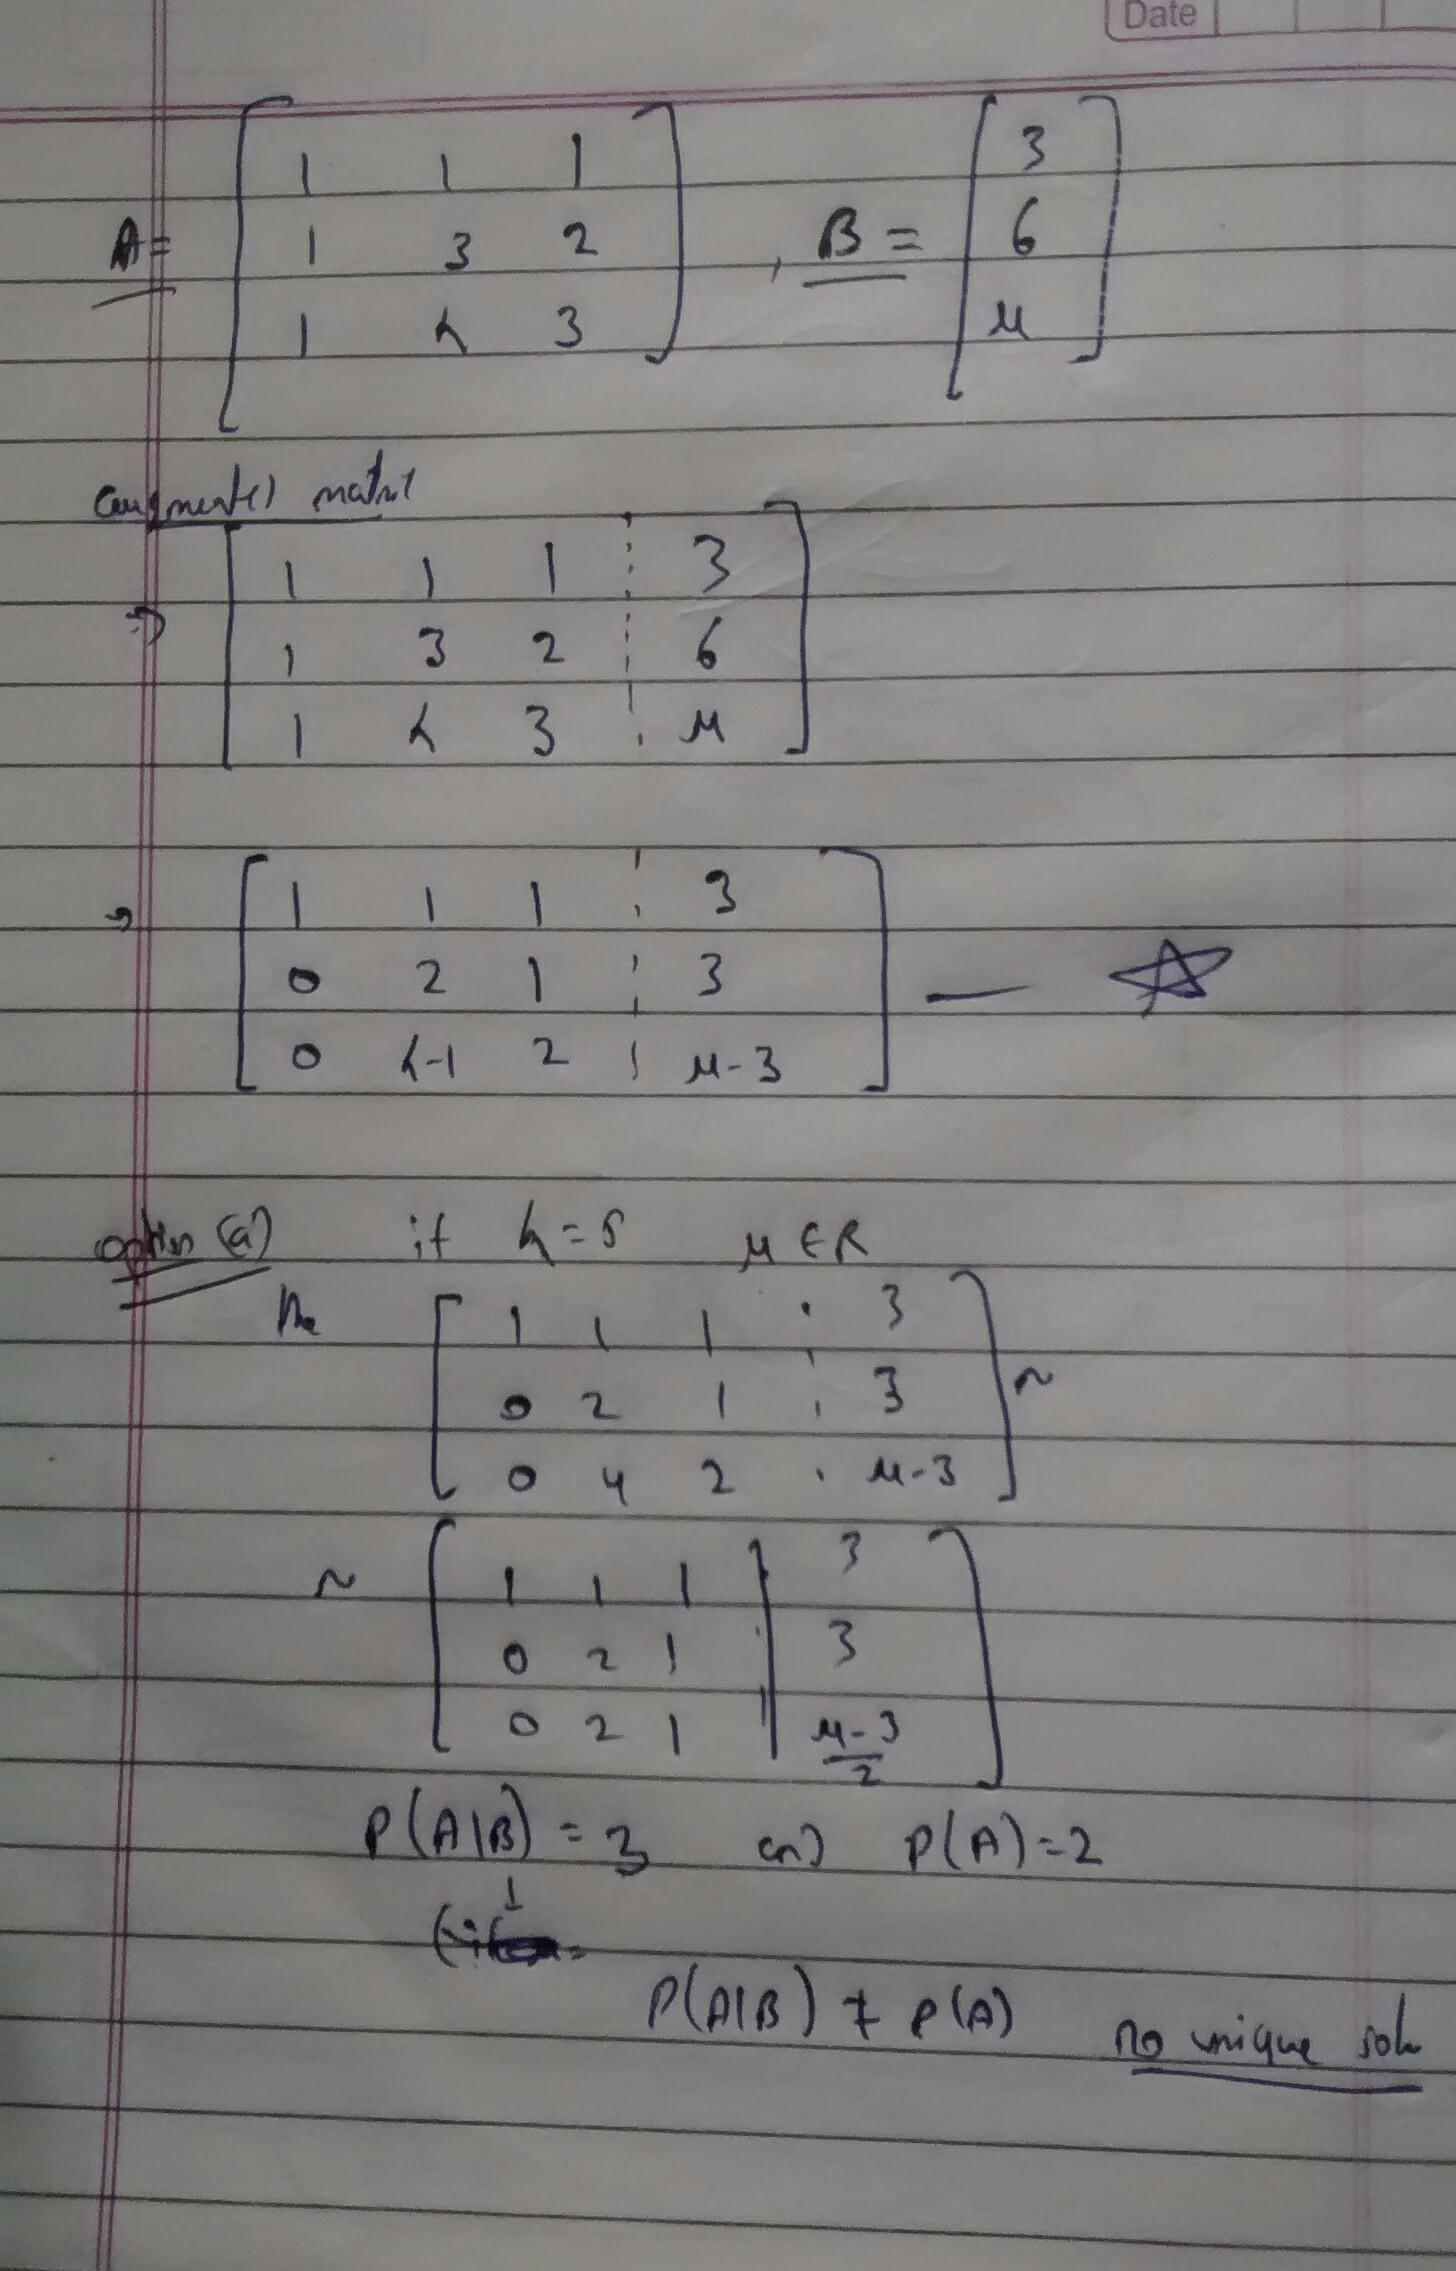 Date
A = [ 1 1 1
1 3 2
1 λ 3 ] , B = [ 3
6
μ ]
augmented matrix
⇒ [ 1 1 1 ⋮ 3
1 3 2 ⋮ 6
1 λ 3 ⋮ μ ]
→ [ 1 1 1 ⋮ 3
0 2 1 ⋮ 3
0 λ-1 2 ⋮ μ-3 ] — ☆
option (a) if λ=5 μ∈R
the [ 1 1 1 ⋮ 3
0 2 1 ⋮ 3
0 4 2 ⋮ μ-3 ] ~
~ [ 1 1 1 | 3
0 2 1 | 3
0 2 1 | μ-3/2 ]
ρ(A|B) = 3 and ρ(A)=2
ρ(A|B) ≠ ρ(A) no unique soln